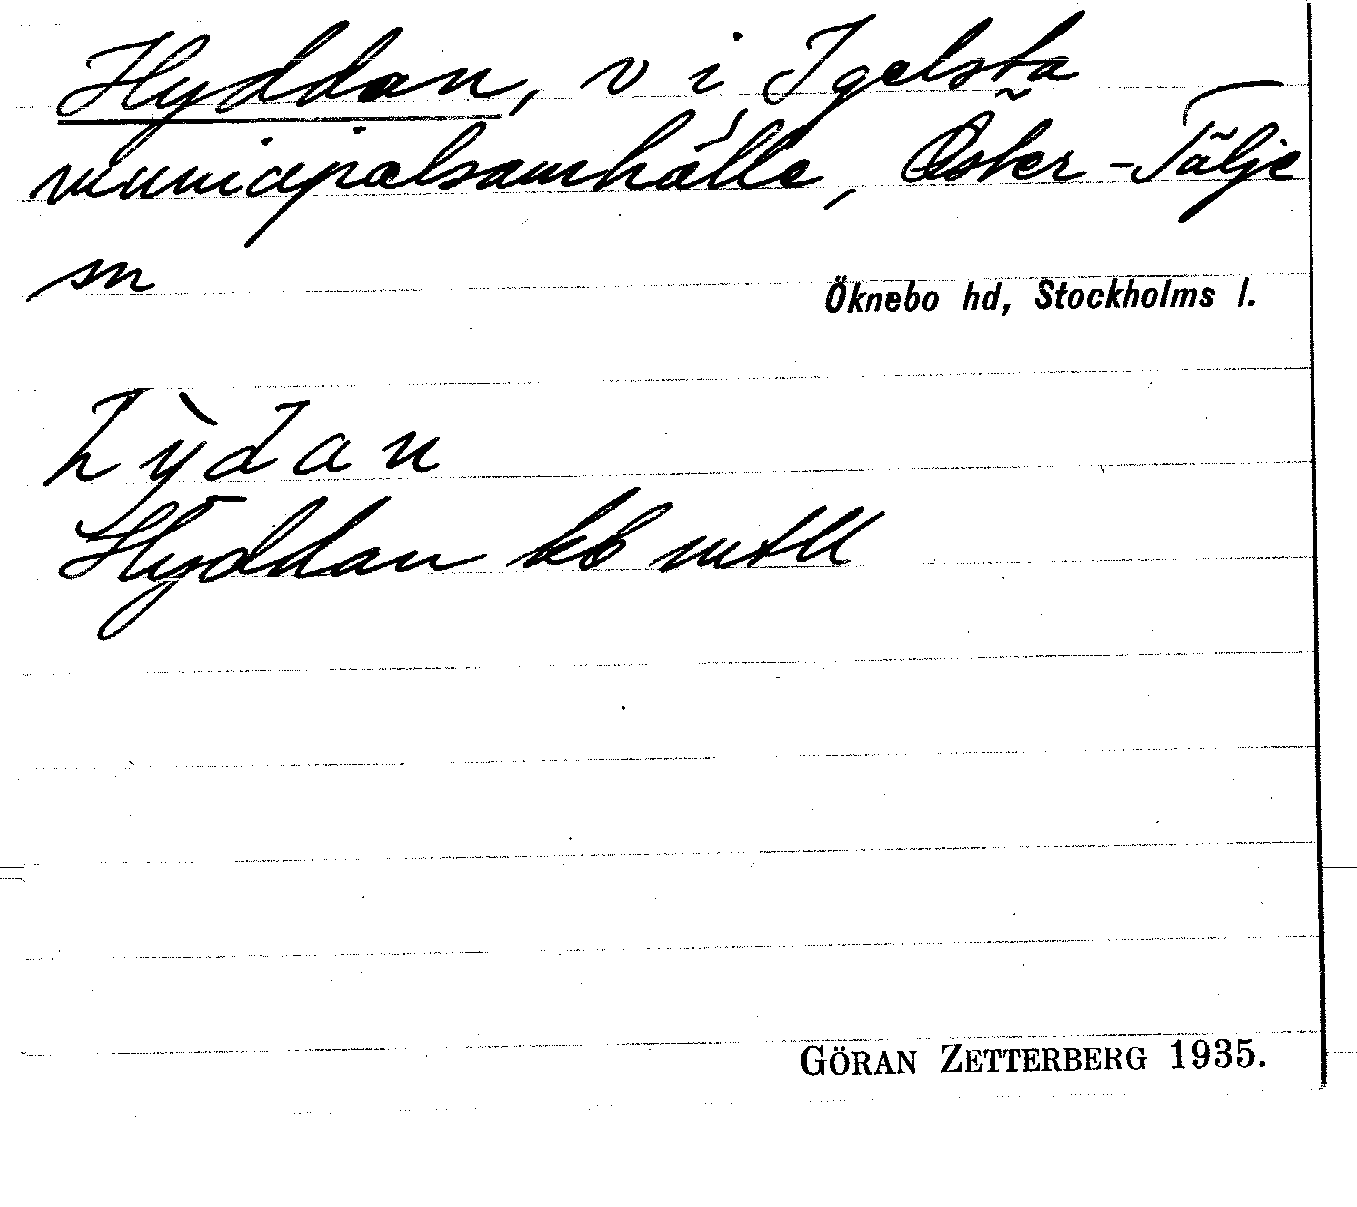 Hyddan, v i Igelsta
municipalsamhälle, Öster-Tälje
sn
Öknebo hd, Stockholms l.
hỳdan
Hyddan kb mtll
GÖRAN ZETTERBERG 1935.